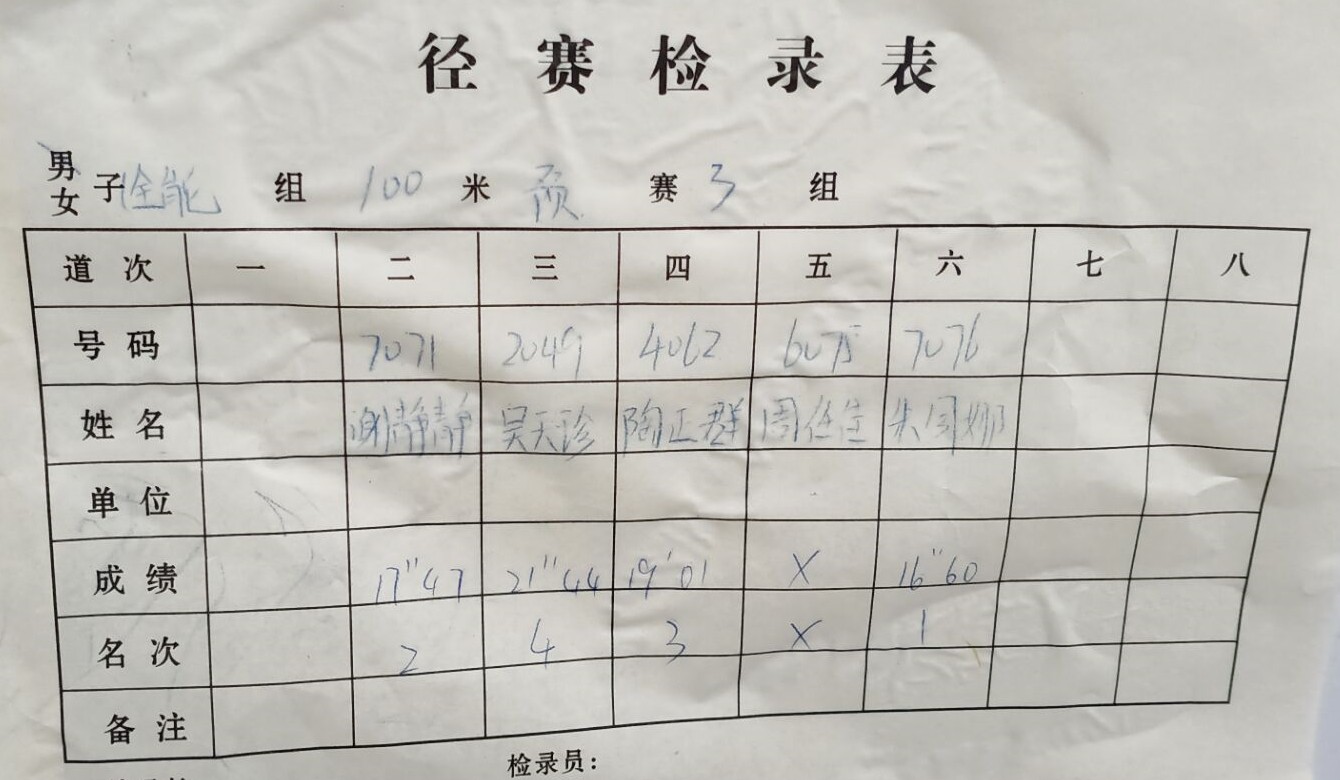 径赛检录表
男
女 子 全能 组 100 米 预 赛 3 组
道次 一 二 三 四 五 六 七 八
号码 7071 2049 4062 6075 7076
姓名 谢静静 吴天珍 陶正群 周佳佳 朱闰娜
单位
成绩 17"47 21"44 19'01 X 16"60
名次 2 4 3 X 1
备注
检录员：